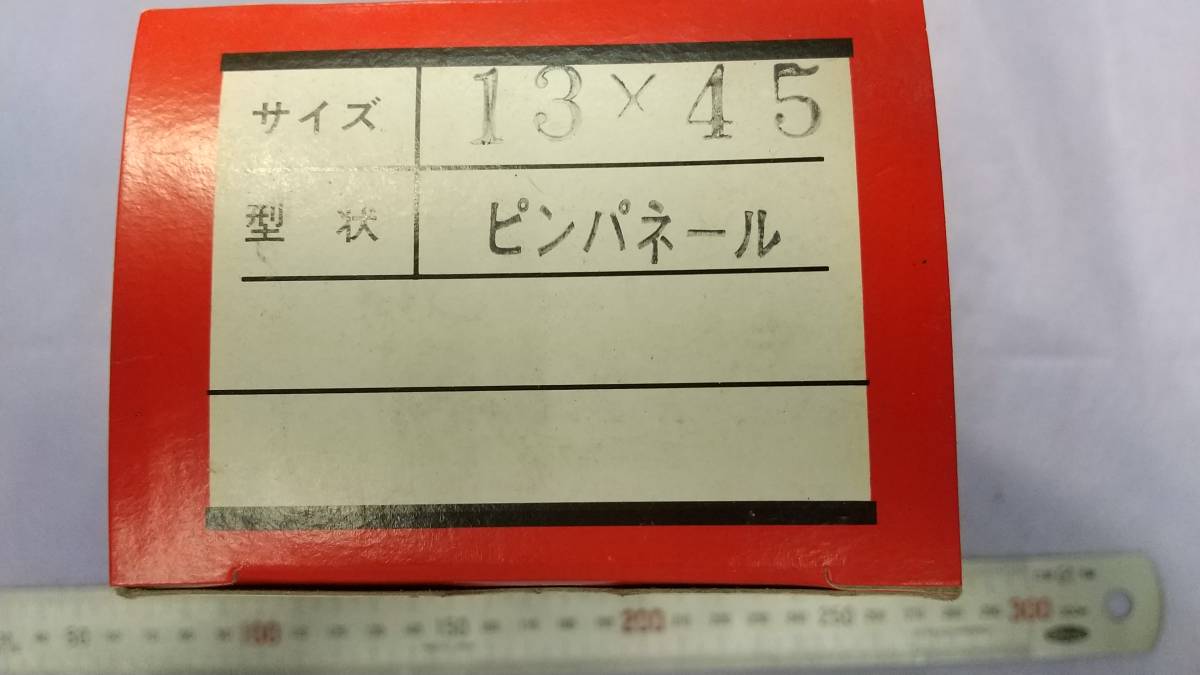 サイズ 13×45
型状 ピンパネール
50 100 150 200 250 300